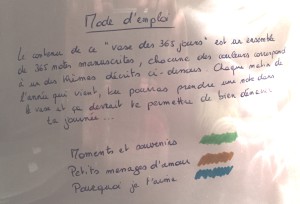 Mode d'emploi
Le contenu de ce "vase des 365 jours" est un ensemble
de 365 notes manuscrites, chacune des couleurs correspond
à un des thèmes décrits ci-dessous. Chaque matin de
l'année qui vient, tu pourras prendre une note dans
le vase et ça devrait te permettre de bien démarrer
ta journée...
Moments et souvenirs
Petits messages d'amour
Pourquoi je t'aime